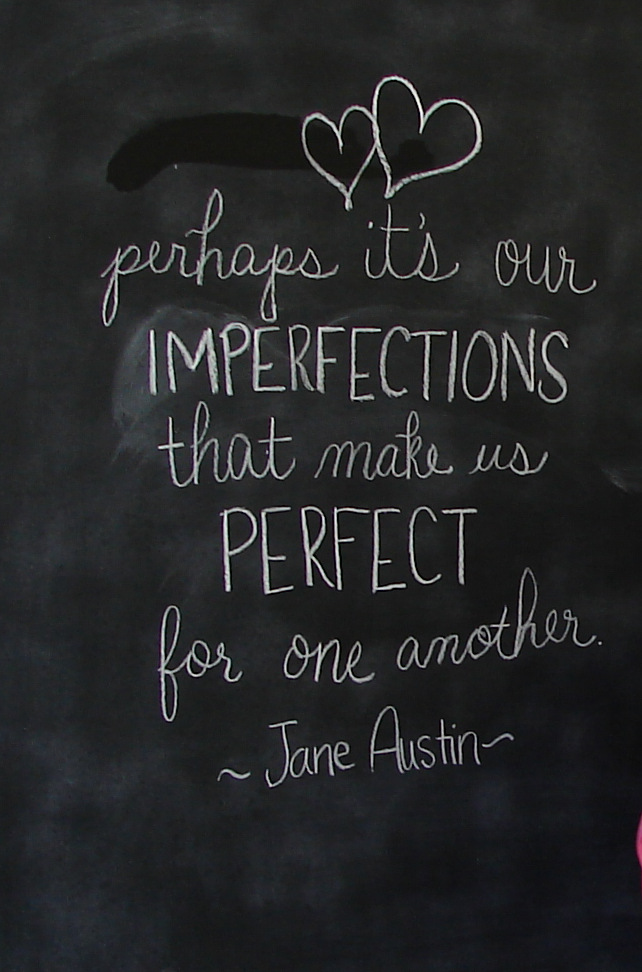 perhaps it's our
IMPERFECTIONS
that make us
PERFECT
for one another.
~ Jane Austin ~